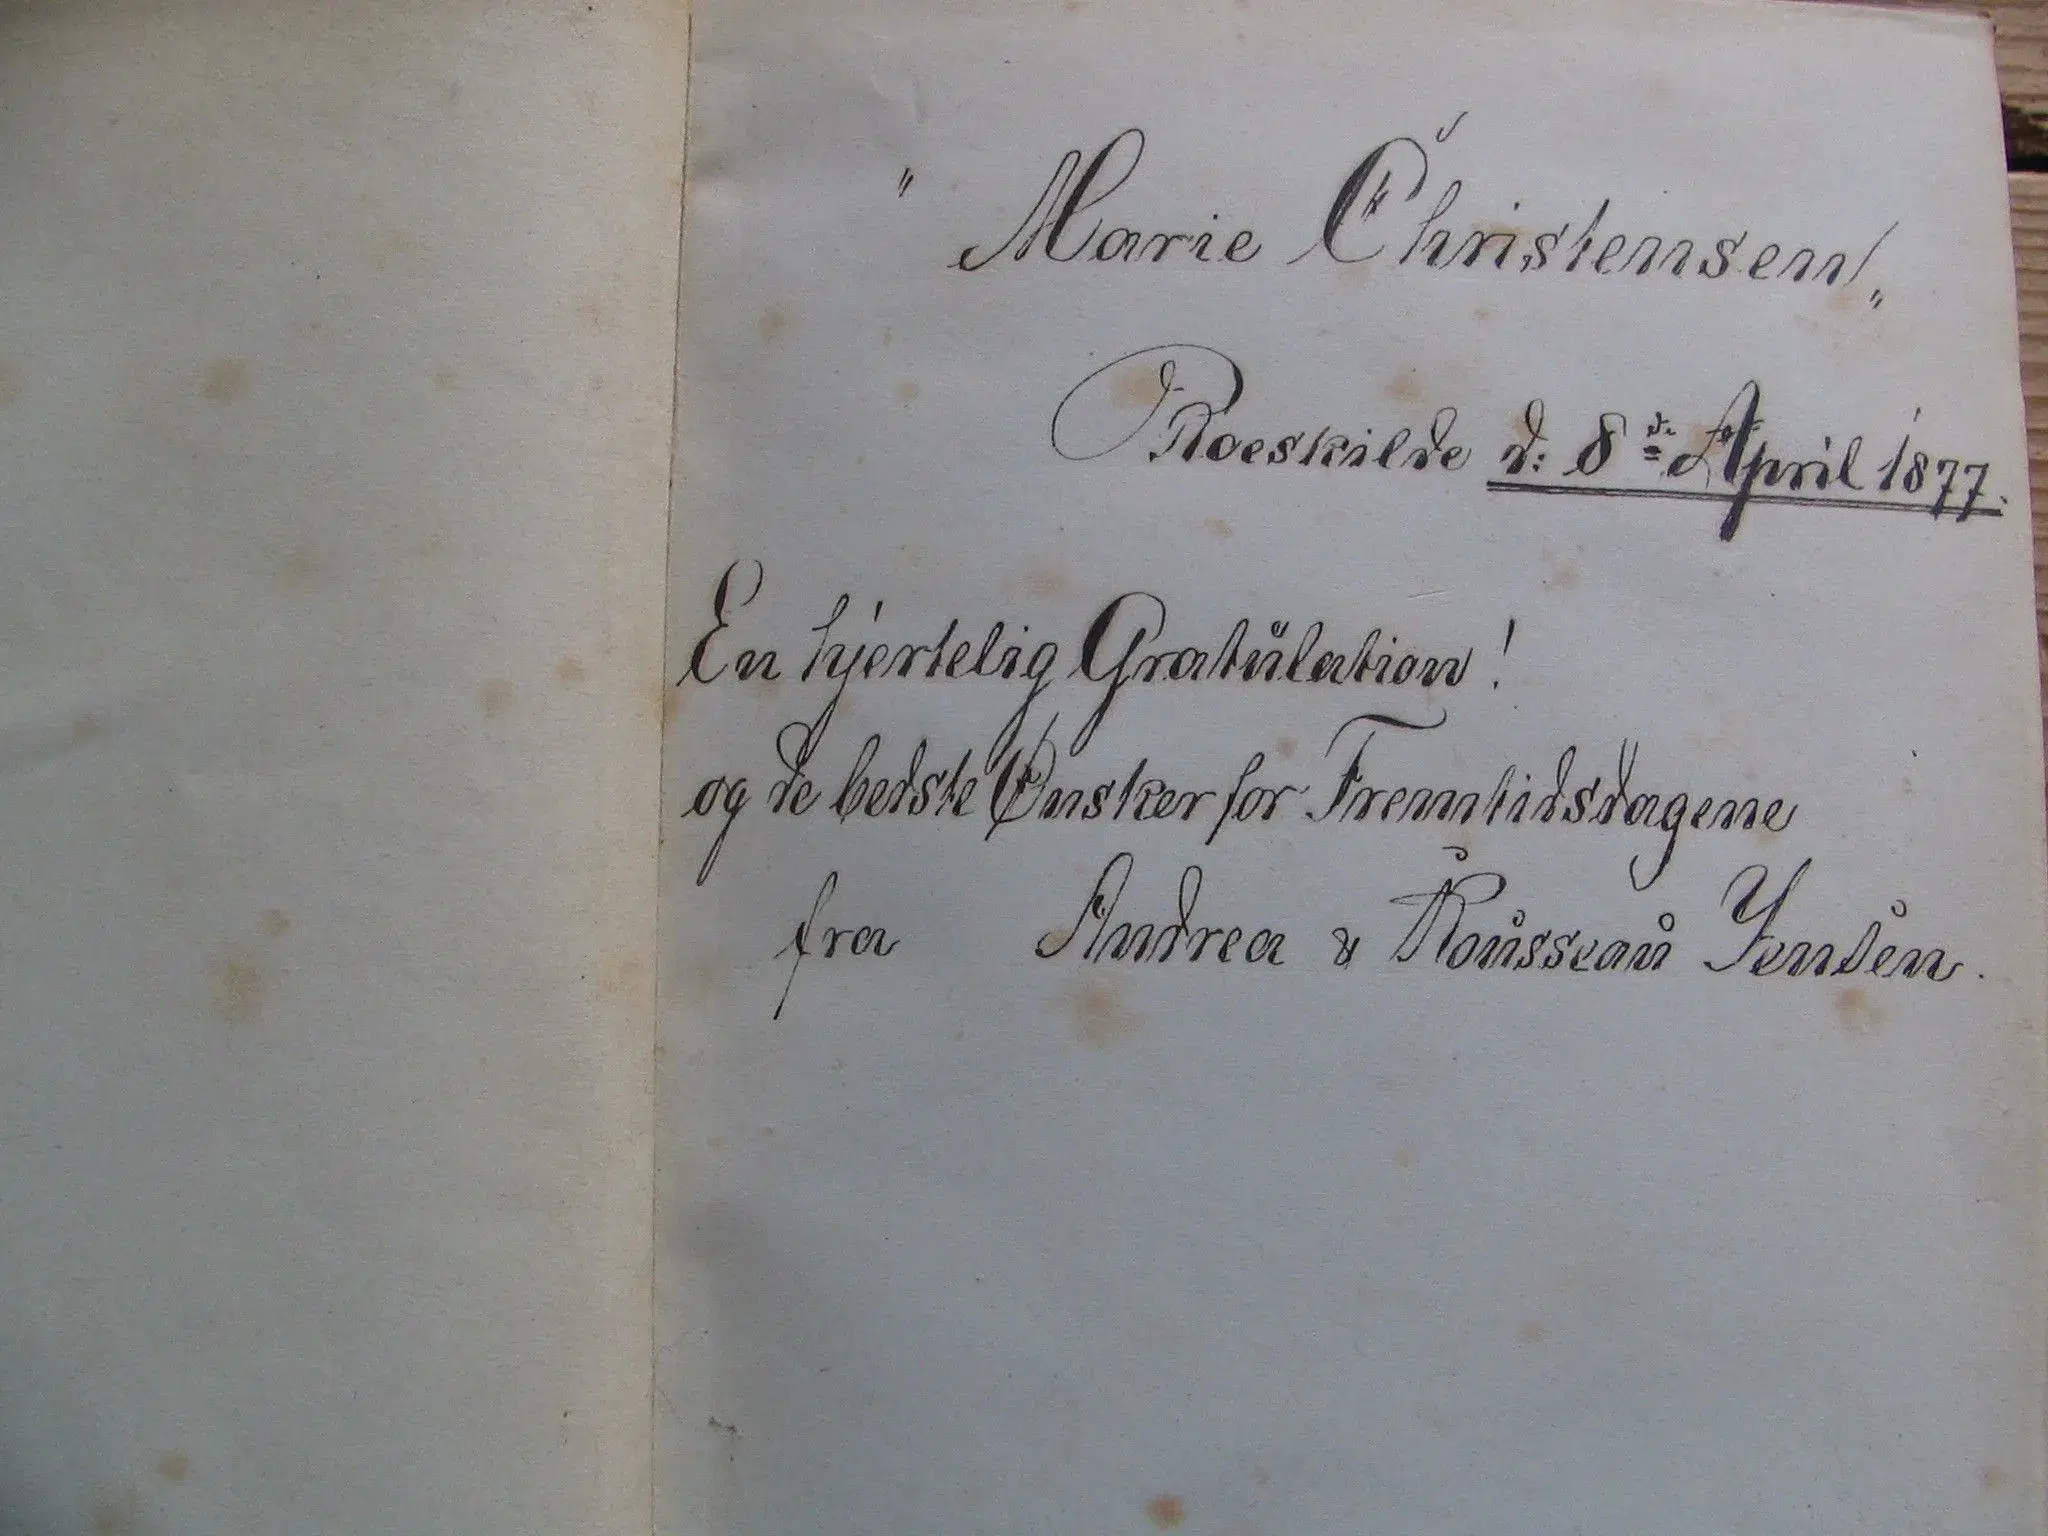 "Marie Christensen"
Roeskilde d: 8de April 1877.
En hjertelig Gratulation!
og de bedste Ønsker for Fremtidsdagene
fra Andrea & Rousseau Jensen.